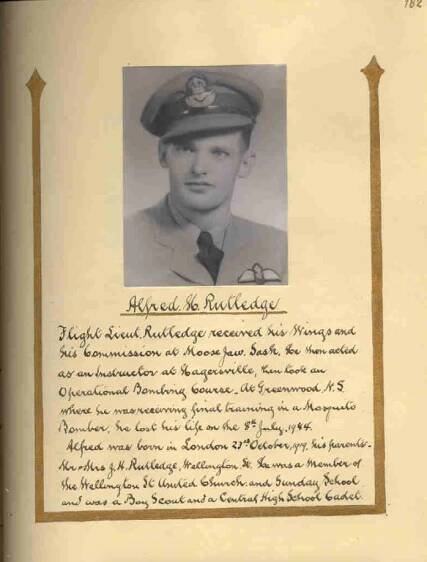 182
Alfred H. Rutledge
Flight Lieut. Rutledge received his Wings and
his Commission at Moose Jaw, Sask. He then acted
as an Instructor at Hagersville, then took an
Operational Bombing Course. At Greenwood N.S.
where he was receiving final training in a Mosquito
Bomber, he lost his life on the 8th July, 1944.
Alfred was born in London 27nd October, 1919, his parents-
Mr & Mrs J.H. Rutledge, Wellington St. He was a Member of
the Wellington St United Church and Sunday School
and was a Boy Scout and a Central High School Cadet.